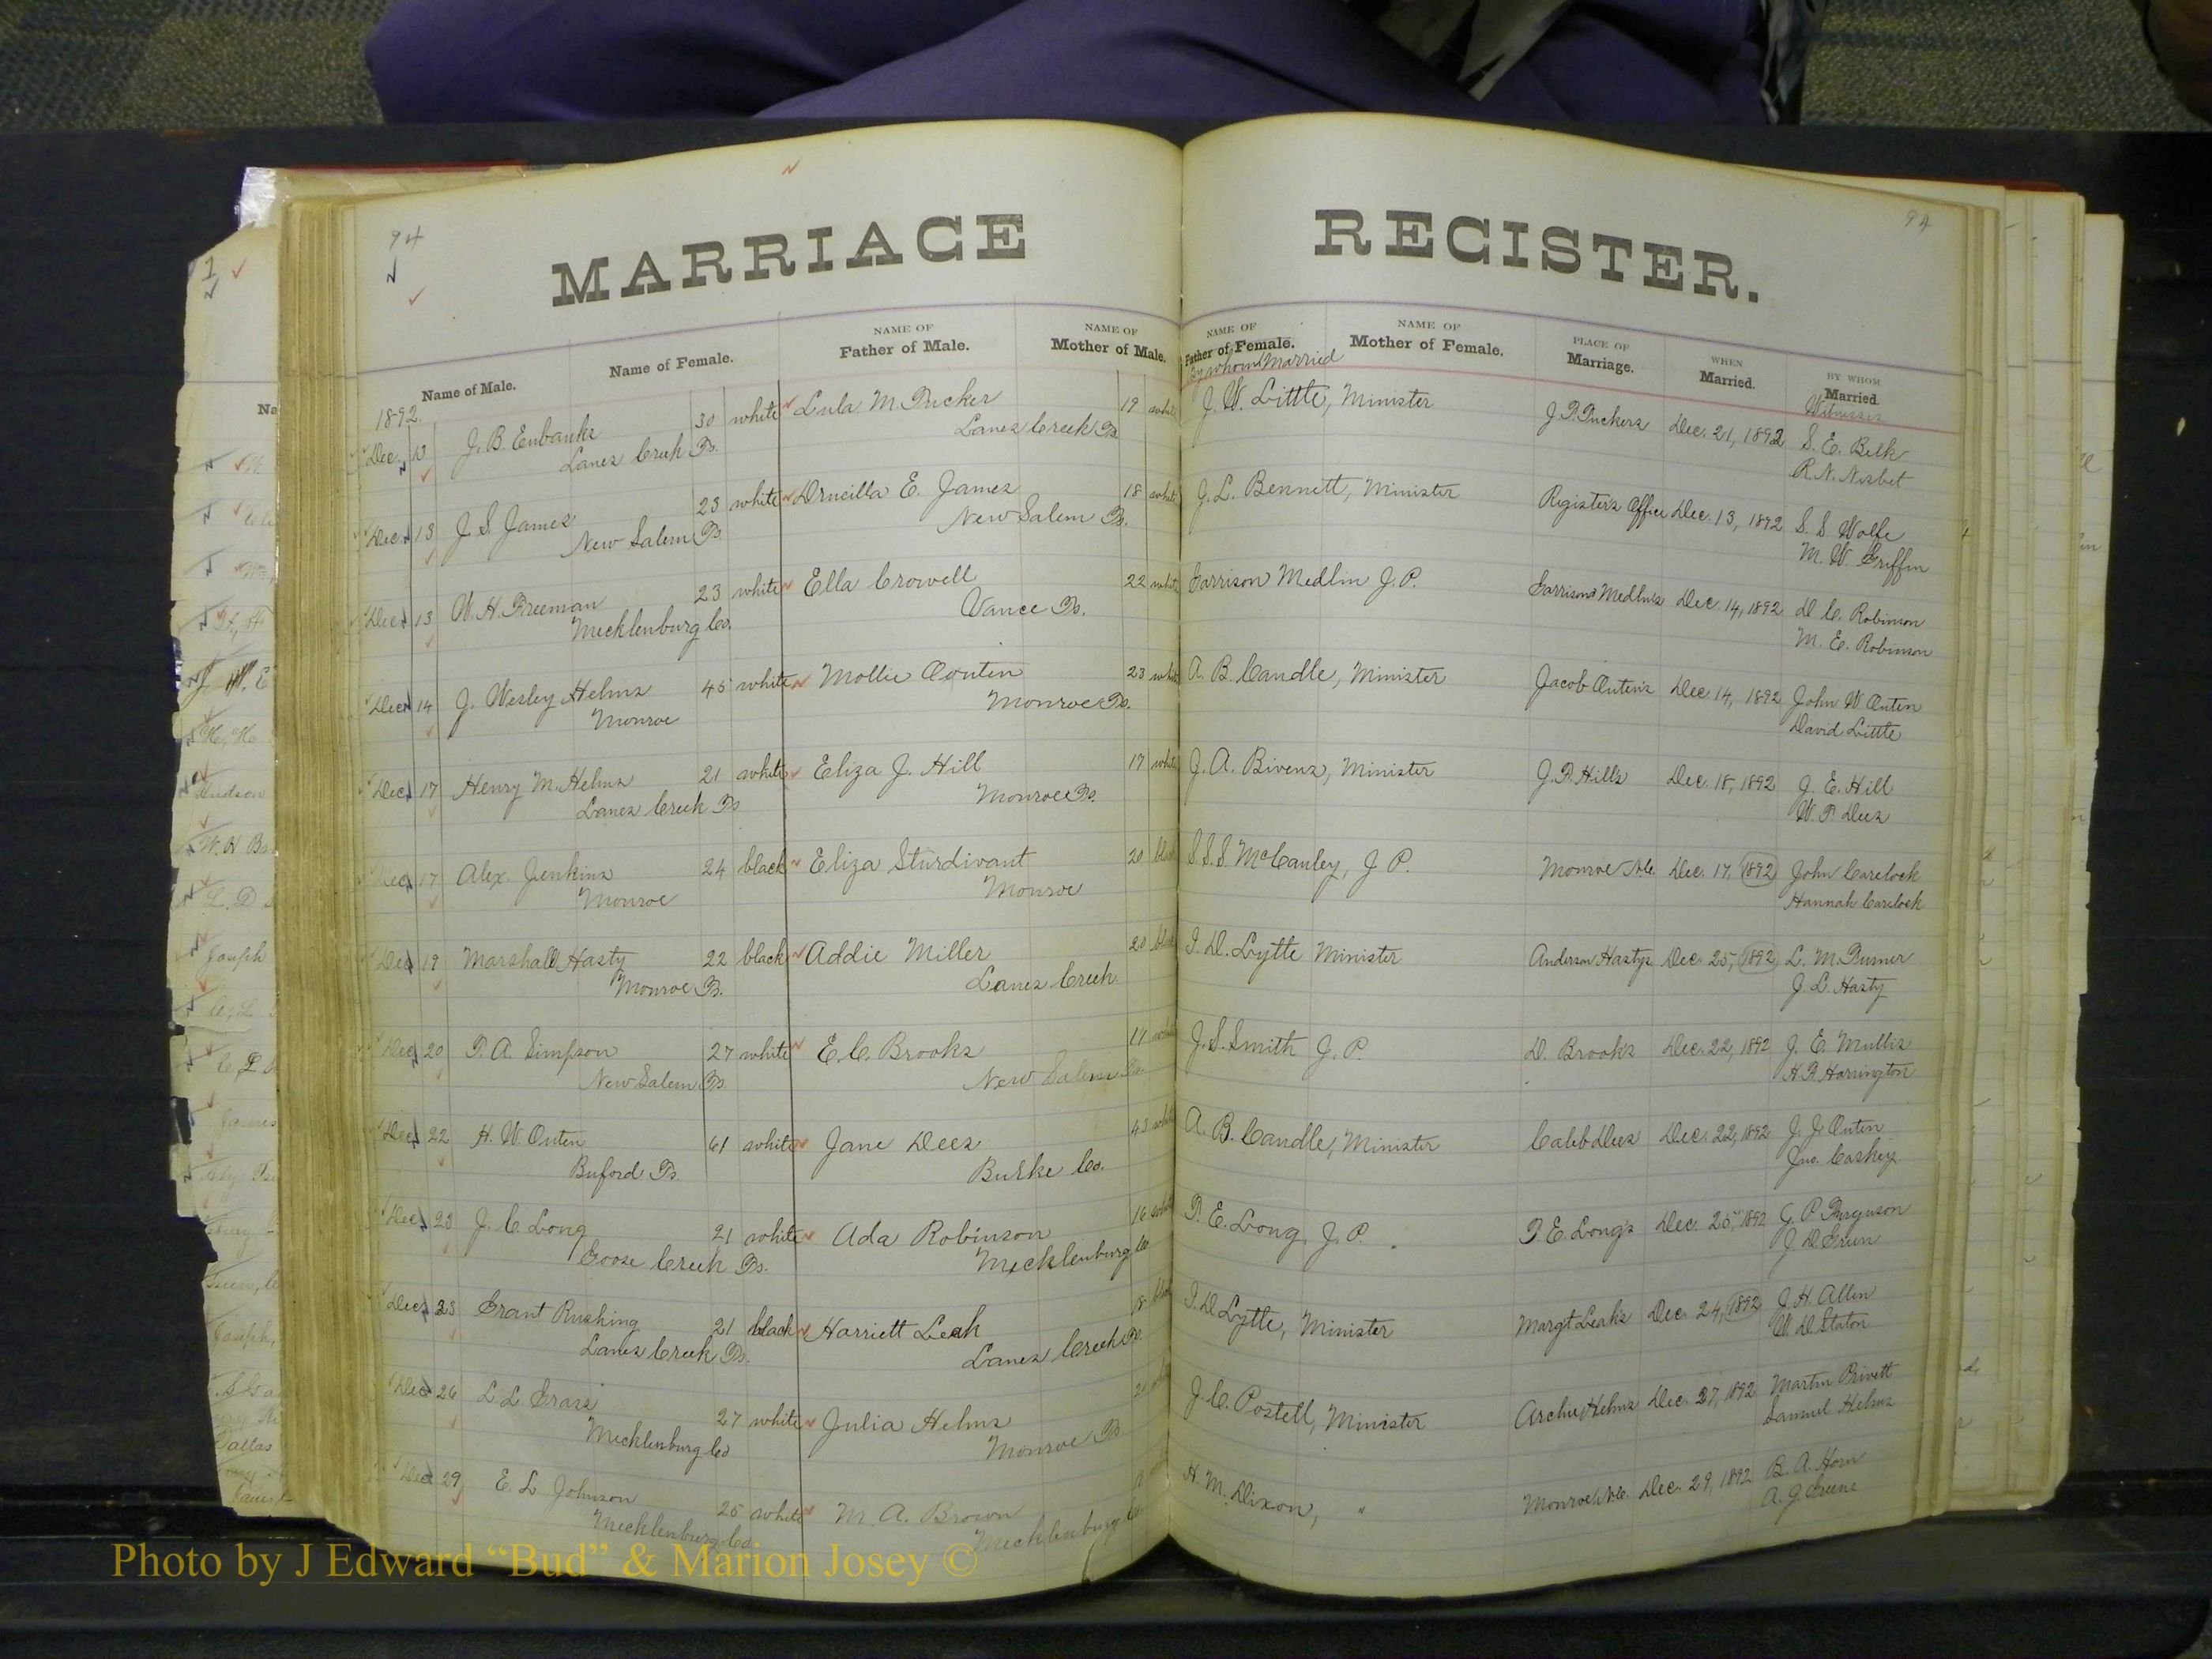 94
94
MARRIAGE REGISTER.
Name of Male.
Name of Female.
NAME OF
Father of Male.
NAME OF
Mother of Male.
NAME OF
Father of Female.
By whom Married
NAME OF
Mother of Female.
PLACE OF
Marriage.
WHEN
Married.
BY WHOM
Married.
Witnesses
1892.
Dec. 13 J. B. Eubanks 30 white Lula M. Tucker 19 white J. W. Little, Minister J. P. Tuckers Dec. 21, 1892 S. E. Belk
Lanes Creek Ts. Lanes Creek Ts. R. N. Nisbet
Dec. 13 J. S. James 23 white Drucilla E. James 18 white J. L. Bennett, Minister Register's Office Dec. 13, 1892 S. S. Wolfe
New Salem Ts. New Salem Ts. M. W. Griffin
Dec. 13 W. H. Freeman 23 white Ella Crowell 22 white Garrison Medlin J. P. Garrison Medlin's Dec. 14, 1892 D. C. Robinson
Mecklenburg Co. Vance Ts. M. E. Robinson
Dec. 14 J. Wesley Helms 45 white Mollie Outen 23 white A. B. Caudle, Minister Jacob Outen's Dec. 14, 1892 John W Outen
Monroe Monroe Ts. David Little
Dec. 17 Henry M. Helms 21 white Eliza J. Hill 17 white J. A. Bivens, Minister J. P. Hills Dec. 18, 1892 J. E. Hill
Lanes Creek Ts Monroe Ts. W. P. Dees
Dec. 17 Alex. Jenkins 24 black Eliza Sturdivant 20 black S. S. S. McCauley, J. P. Monroe N.C. Dec. 17, 1892 John Carelock
Monroe Monroe Hannah Carelock
Dec. 19 Marshall Hasty 22 black Addie Miller 20 black I. D. Lytte Minister Anderson Hastys Dec. 25, 1892 L. M. Turner
Monroe Ts. Lanes Creek J. L. Hasty
Dec. 20 T. A. Simpson 27 white E. C. Brooks white J. S. Smith J. P. D. Brooks Dec. 22, 1892 J. E. Mullis
New Salem Ts. New Salem Ts. Harrington
Dec. 22 H. W. Outen 61 white Jane Dees 43 white A. B. Caudle, Minister Caleb Dees Dec. 22, 1892 J. J. Outen
Buford Ts. Burke Co. Jno. Caskey
Dec. 23 J. C. Long 21 white Ada Robinson 16 white T. E. Long, J. P. T. E. Long's Dec. 25, 1892 G. P. Furguson
Goose Creek Ts. Mecklenburg Co J. D. Green
Dec. 23 Grant Rushing 21 black Harriett Leak 18 black I. D Lytte, Minister Margt Leaks Dec. 24, 1892 J. H. Allen
Lanes Creek Ts. Lanes Creek Ts. W. D. Staton
Dec. 26 L. L. Grass 27 white Julia Helms J. C. Postell, Minister Archie Helms Dec. 27, 1892 Martin Privett
Mecklenburg Co Monroe Ts. Samuel Helms
Dec 29 E. L. Johnson 25 white M. A. Brown H. M. Dixon, " Monroe N.C. Dec. 29, 1892 B. A. Horn
Mecklenburg Co. Mecklenburg Co. A. J. Greene
Photo by J Edward “Bud” & Marion Josey ©